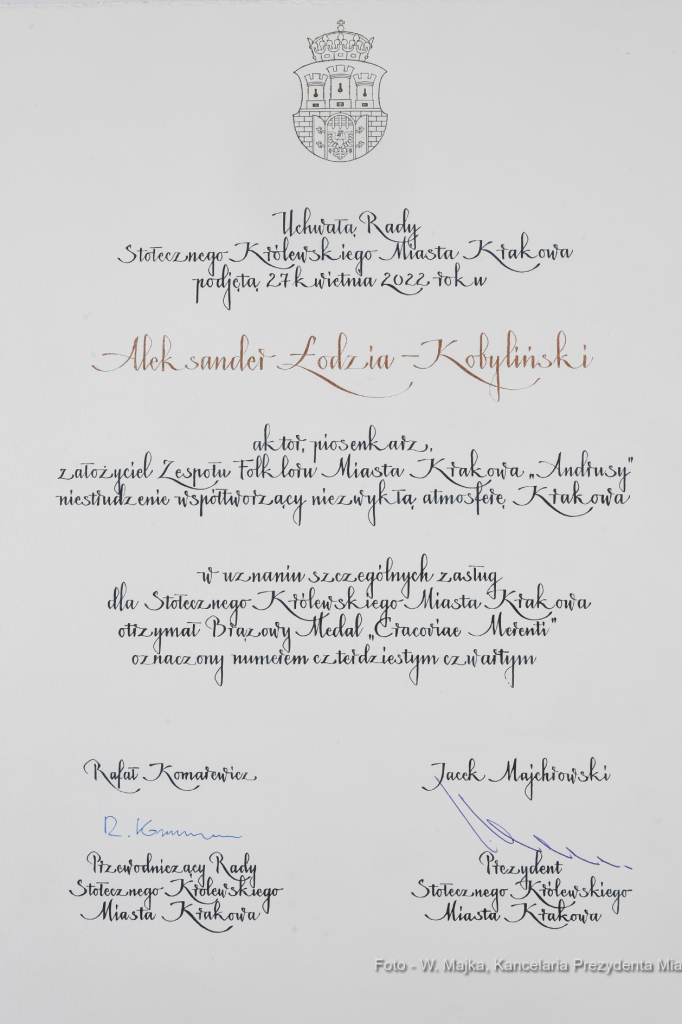 Uchwałą Rady
Stołecznego Królewskiego Miasta Krakowa
podjętą 27 kwietnia 2022 roku
Aleksander Łodzia-Kobyliński
aktor, piosenkarz,
założyciel Zespołu Folkloru Miasta Krakowa „Andrusy”
niestrudzenie współtworzący niezwykłą atmosferę Krakowa
w uznaniu szczególnych zasług
dla Stołecznego Królewskiego Miasta Krakowa
otrzymał Brązowy Medal „Cracoviae Merenti”
oznaczony numerem czterdziestym czwartym
Rafał Komarewicz
Jacek Majchrowski
R. Komarewicz
Przewodniczący Rady
Stołecznego Królewskiego
Miasta Krakowa
Prezydent
Stołecznego Królewskiego
Miasta Krakowa
Foto - W. Majka, Kancelaria Prezydenta Mia